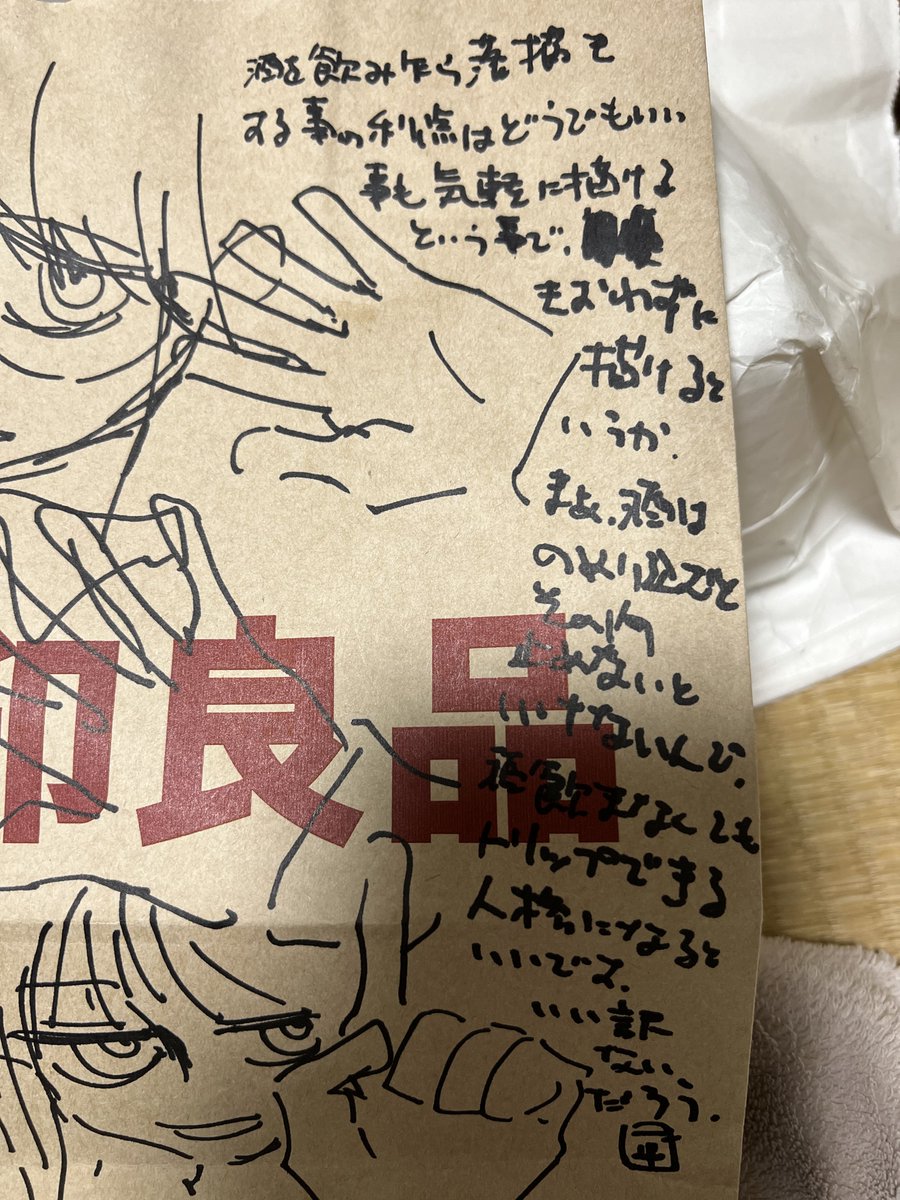 酒を飲みながら落描を
する事の利点はどうでもいい
事も気軽に描ける
という事で、
もおわれずに
描けると
いうか、
まぁ、酒は
のめり込むと
その内
止めないと
いけないんで、
酒飲まなくても
トリップできる
人格になると
いいです。
いい訳
ない
だろう。
印良品